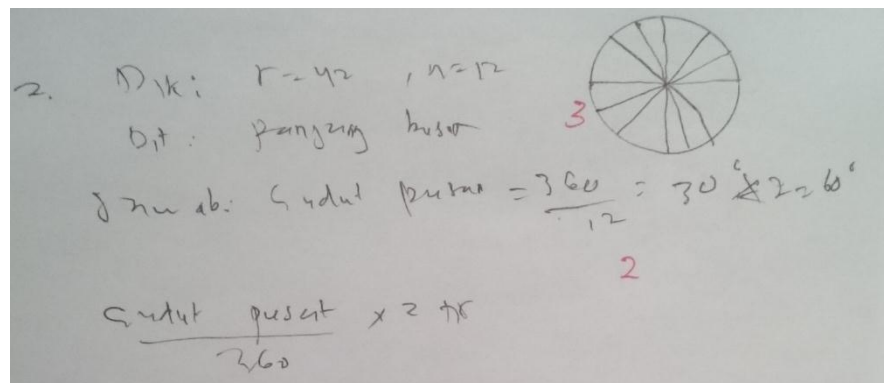 2. Dik: r = 42, n = 12
3
Dit: panjang busur
Jawab: Sudut pusat = 360/12 = 30° x 2 = 60°
2
Sudut pusat/360 x 2πr